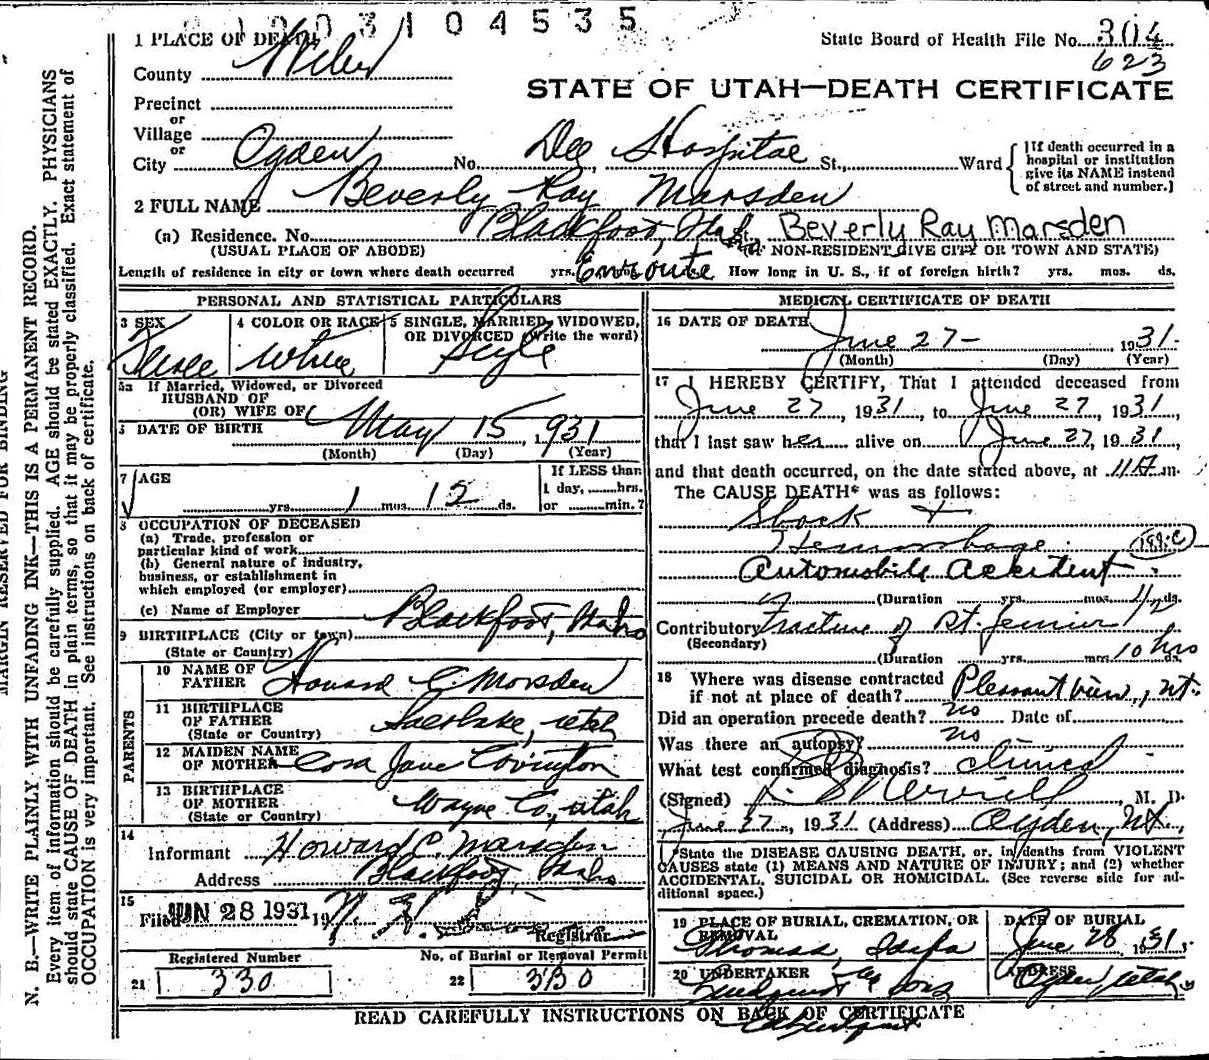 3104535
1 PLACE OF DEATH
State Board of Health File No. 304
623
County Weber
STATE OF UTAH—DEATH CERTIFICATE
Precinct
or
Village
or
City Ogden No. Dee Hospital St., Ward
[If death occurred in a hospital or institution give its NAME instead of street and number.]
2 FULL NAME Beverly Ray Marsden
(a) Residence. No. Blackfoot, Idaho Beverly Ray Marsden
(USUAL PLACE OF ABODE) (If NON-RESIDENT GIVE CITY OR TOWN AND STATE)
Length of residence in city or town where death occurred yrs. Enroute How long in U. S., if of foreign birth? yrs. mos. ds.
PERSONAL AND STATISTICAL PARTICULARS
3 SEX Female
4 COLOR OR RACE White
5 SINGLE, MARRIED, WIDOWED, OR DIVORCED (Write the word) Single
5a If Married, Widowed, or Divorced
HUSBAND OF
(OR) WIFE OF
DATE OF BIRTH May 15, 1931
(Month) (Day) (Year)
7 AGE yrs. 1 mos. 12 ds.
If LESS than 1 day, hrs. or min.?
8 OCCUPATION OF DECEASED
(a) Trade, profession, or particular kind of work
(b) General nature of industry, business, or establishment in which employed (or employer)
(c) Name of Employer
9 BIRTHPLACE (City or town) Blackfoot, Idaho
(State or Country)
PARENTS
10 NAME OF FATHER Howard C. Marsden
11 BIRTHPLACE OF FATHER Salt Lake, Utah
(State or Country)
12 MAIDEN NAME OF MOTHER Cora Jane Covington
13 BIRTHPLACE OF MOTHER Wayne Co., Utah
(State or Country)
14 Informant Howard C. Marsden
Address Blackfoot, Idaho
15 Filed JUN 28 1931 19
Registrar
Registered Number
21 330
No. of Burial or Removal Permit
22 330
MEDICAL CERTIFICATE OF DEATH
16 DATE OF DEATH
June 27 - 1931.
(Month) (Day) (Year)
17 I HEREBY CERTIFY, That I attended deceased from
June 27, 1931, to June 27, 1931,
that I last saw her alive on June 27, 1931,
and that death occurred, on the date stated above, at 11 A m.
The CAUSE DEATH* was as follows:
Shock +
Hemorrhage.
Automobile accident.
(Duration yrs. mos. ds.
Contributory Fracture of Rt. femur
(Secondary)
(Duration yrs. mos. 10 hrs ds.
18 Where was disease contracted
if not at place of death? Pleasant View, Ut.
Did an operation precede death? no Date of
Was there an autopsy? no
What test confirmed diagnosis? Clinical
(Signed) Merrill, M. D.
June 27, 1931 (Address) Ogden, Ut.,
*State the DISEASE CAUSING DEATH, or, in deaths from VIOLENT CAUSES state (1) MEANS AND NATURE OF INJURY; and (2) whether ACCIDENTAL, SUICIDAL OR HOMICIDAL. (See reverse side for additional space.)
19 PLACE OF BURIAL, CREMATION, OR REMOVAL Thomas, Idaho
DATE OF BURIAL June 28, 1931
20 UNDERTAKER Lindquist & Sons
ADDRESS Ogden, Utah
READ CAREFULLY INSTRUCTIONS ON BACK OF CERTIFICATE
MARGIN RESERVED FOR BINDING
N. B.—WRITE PLAINLY WITH UNFADING INK—THIS IS A PERMANENT RECORD.
Every item of information should be carefully supplied. AGE should be stated EXACTLY. PHYSICIANS
should state CAUSE OF DEATH in plain terms, so that it may be properly classified. Exact statement of
OCCUPATION is very important. See instructions on back of certificate.